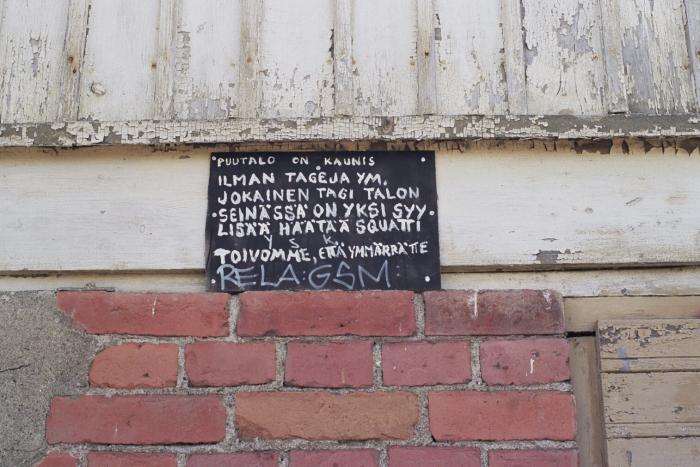 PUUTALO ON KAUNIS
ILMAN TAGEJA YM.
JOKAINEN TAGI TALON
SEINÄSSÄ ON YKSI SYY
LISÄÄ HÄÄTÄÄ SQUATTI
Y S K
TOIVOMME, ETTÄ YMMÄRRÄTTE
RELA:GSM: